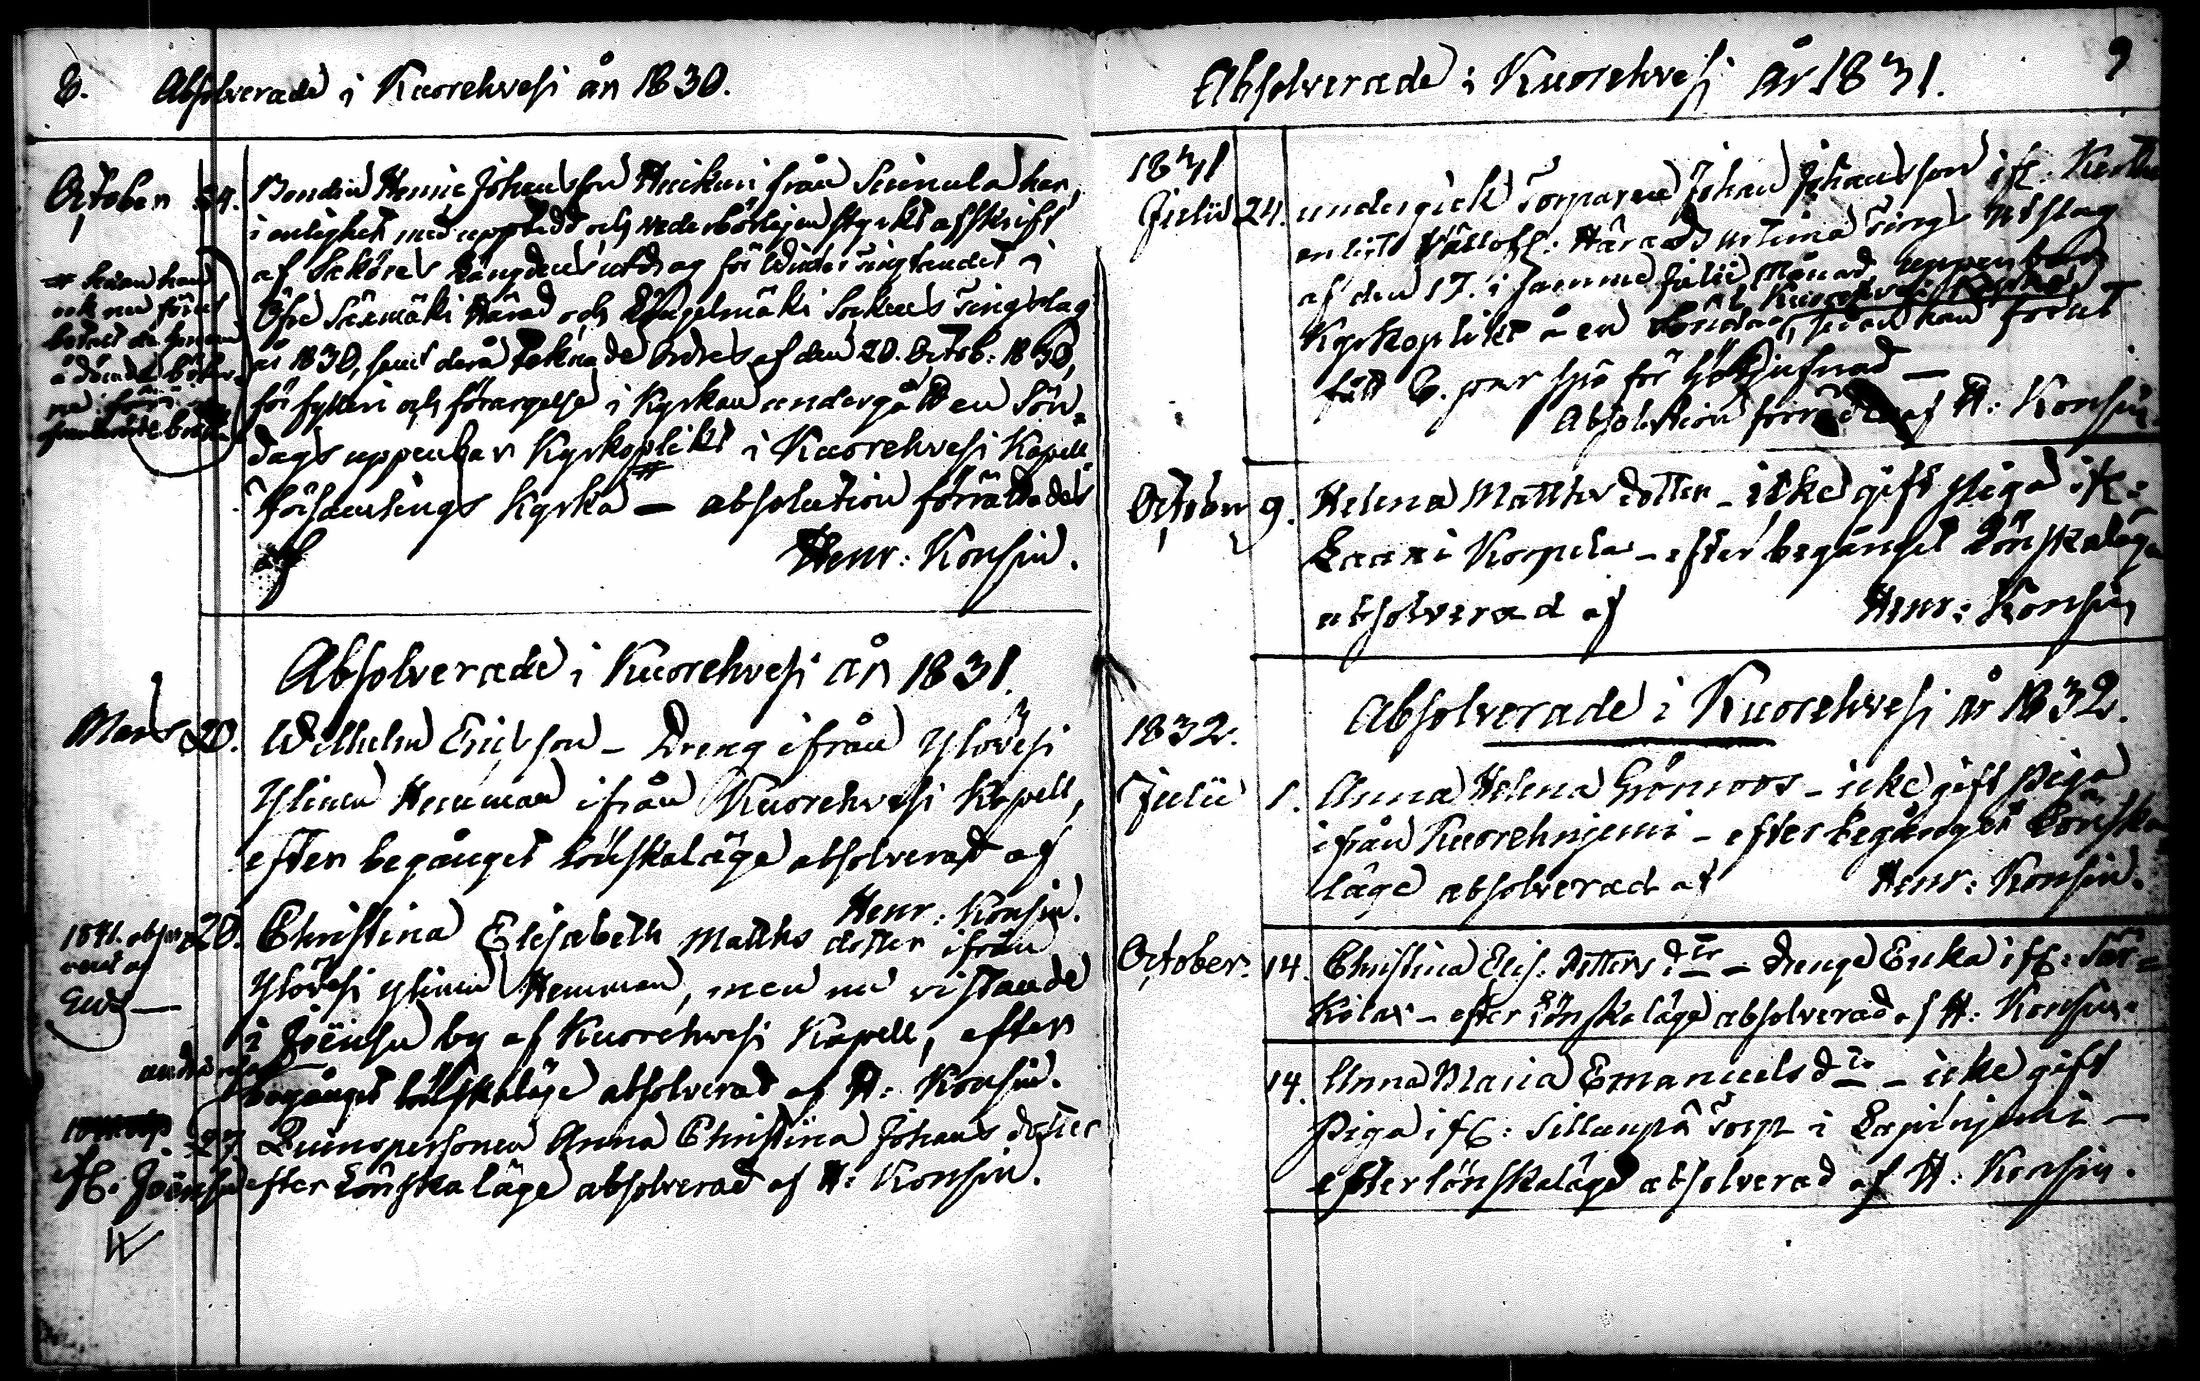 8. Absolverade i Kuorehvesi år 1830.
October 24. Bonden Henric Johansson Heikuri från Suinula har,
i enlighet med uppvist och vederbörligen styrkt afskrift
af Saköres Längdens utdrag för Winter Tingtandet i
Öfre Säxmäki Härad och Längelmäki Sockens Tingslag
år 1830, samt derå Teknade Ordres af den 20. Octob: 1830,
för fylleri och förargelse i Kyrkan undergått en Sön-
dags uppenbar Kyrkoplikt i Kuorehvesi Kapell
församlings Kyrka # — absolution förrättades
af Henr: Konsin.
# sedan han
ock nu förut
botat de honom
ådömda böter-
ne
Absolverade i Kuorehvesi år 1831.
Mars 20. Wilhelm Ericsson – Dreng ifrån Ylövesi
Ylinen Hemman ifrån Kuorehvesi Kapell,
efter begånget Lönskaläge absolverad af
Henr: Konsin.
20. Christina Elisabeth Matths dotter ifrån
Ylövesi Ylinen Hemman, men nu vistande
i Joënsu by af Kuorehvesi Kapell, efter
begånget lönskaläge absolverad af H: Konsin.
27. Qvinspersonen Anna Christina Johans dotter
if: Joënsu efter Lönskaläge absolverad af H: Konsin.
Absolverade i Kuorehvesi år 1831. 9
1831
Julii 24. undergick Torparen Johan Johansson if:
enligt Vällofl: Härads urtima Tings Utslag
af den 17. i samme Julii Månad, uppenbar
Kyrkoplikt å en Söndag i Kuorehvesi Kyrka, sedan han förut
fått 8. par spö för Tjufnad —
Absolution förrättad af H: Konsin.
October 9. Helena Matths dotter – icke gift Piga if:
Laaxi Korpela – efter begånget Lönskaläge
absolverad af Henr: Konsin
Absolverade i Kuorehvesi år 1832.
1832.
Julii 1. Anna Helena Grönroos – icke gift Piga
ifrån Kuorehnjemi – efter begånget Lönska
läge absolverad af Henr: Konsin.
October. 14. Christina Elis: Petters dtr – drenge Enka if: Sär=
Kilax – efter lönskaläge absolverad af H: Konsin.
14. Anna Maria Emanuels dtr – icke gift
Piga if: Sillanpä Torp i Lapinjemi –
efter lönskaläge absolverad af H: Konsin.